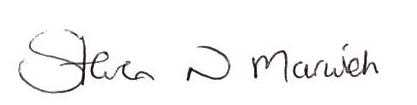 Steven N Marwieh